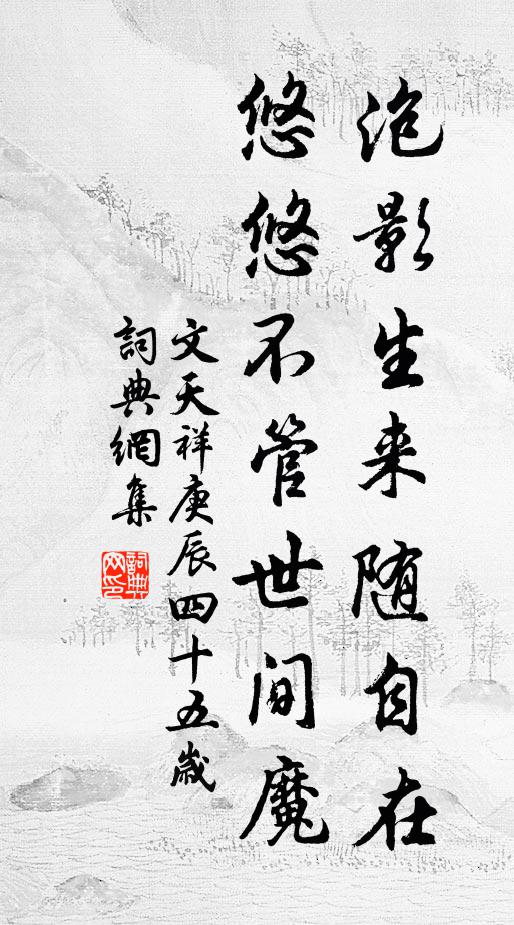 泡影生来随自在
悠悠不管世间魔
文天祥庚辰四十五歲
詞典網集
詞典網印